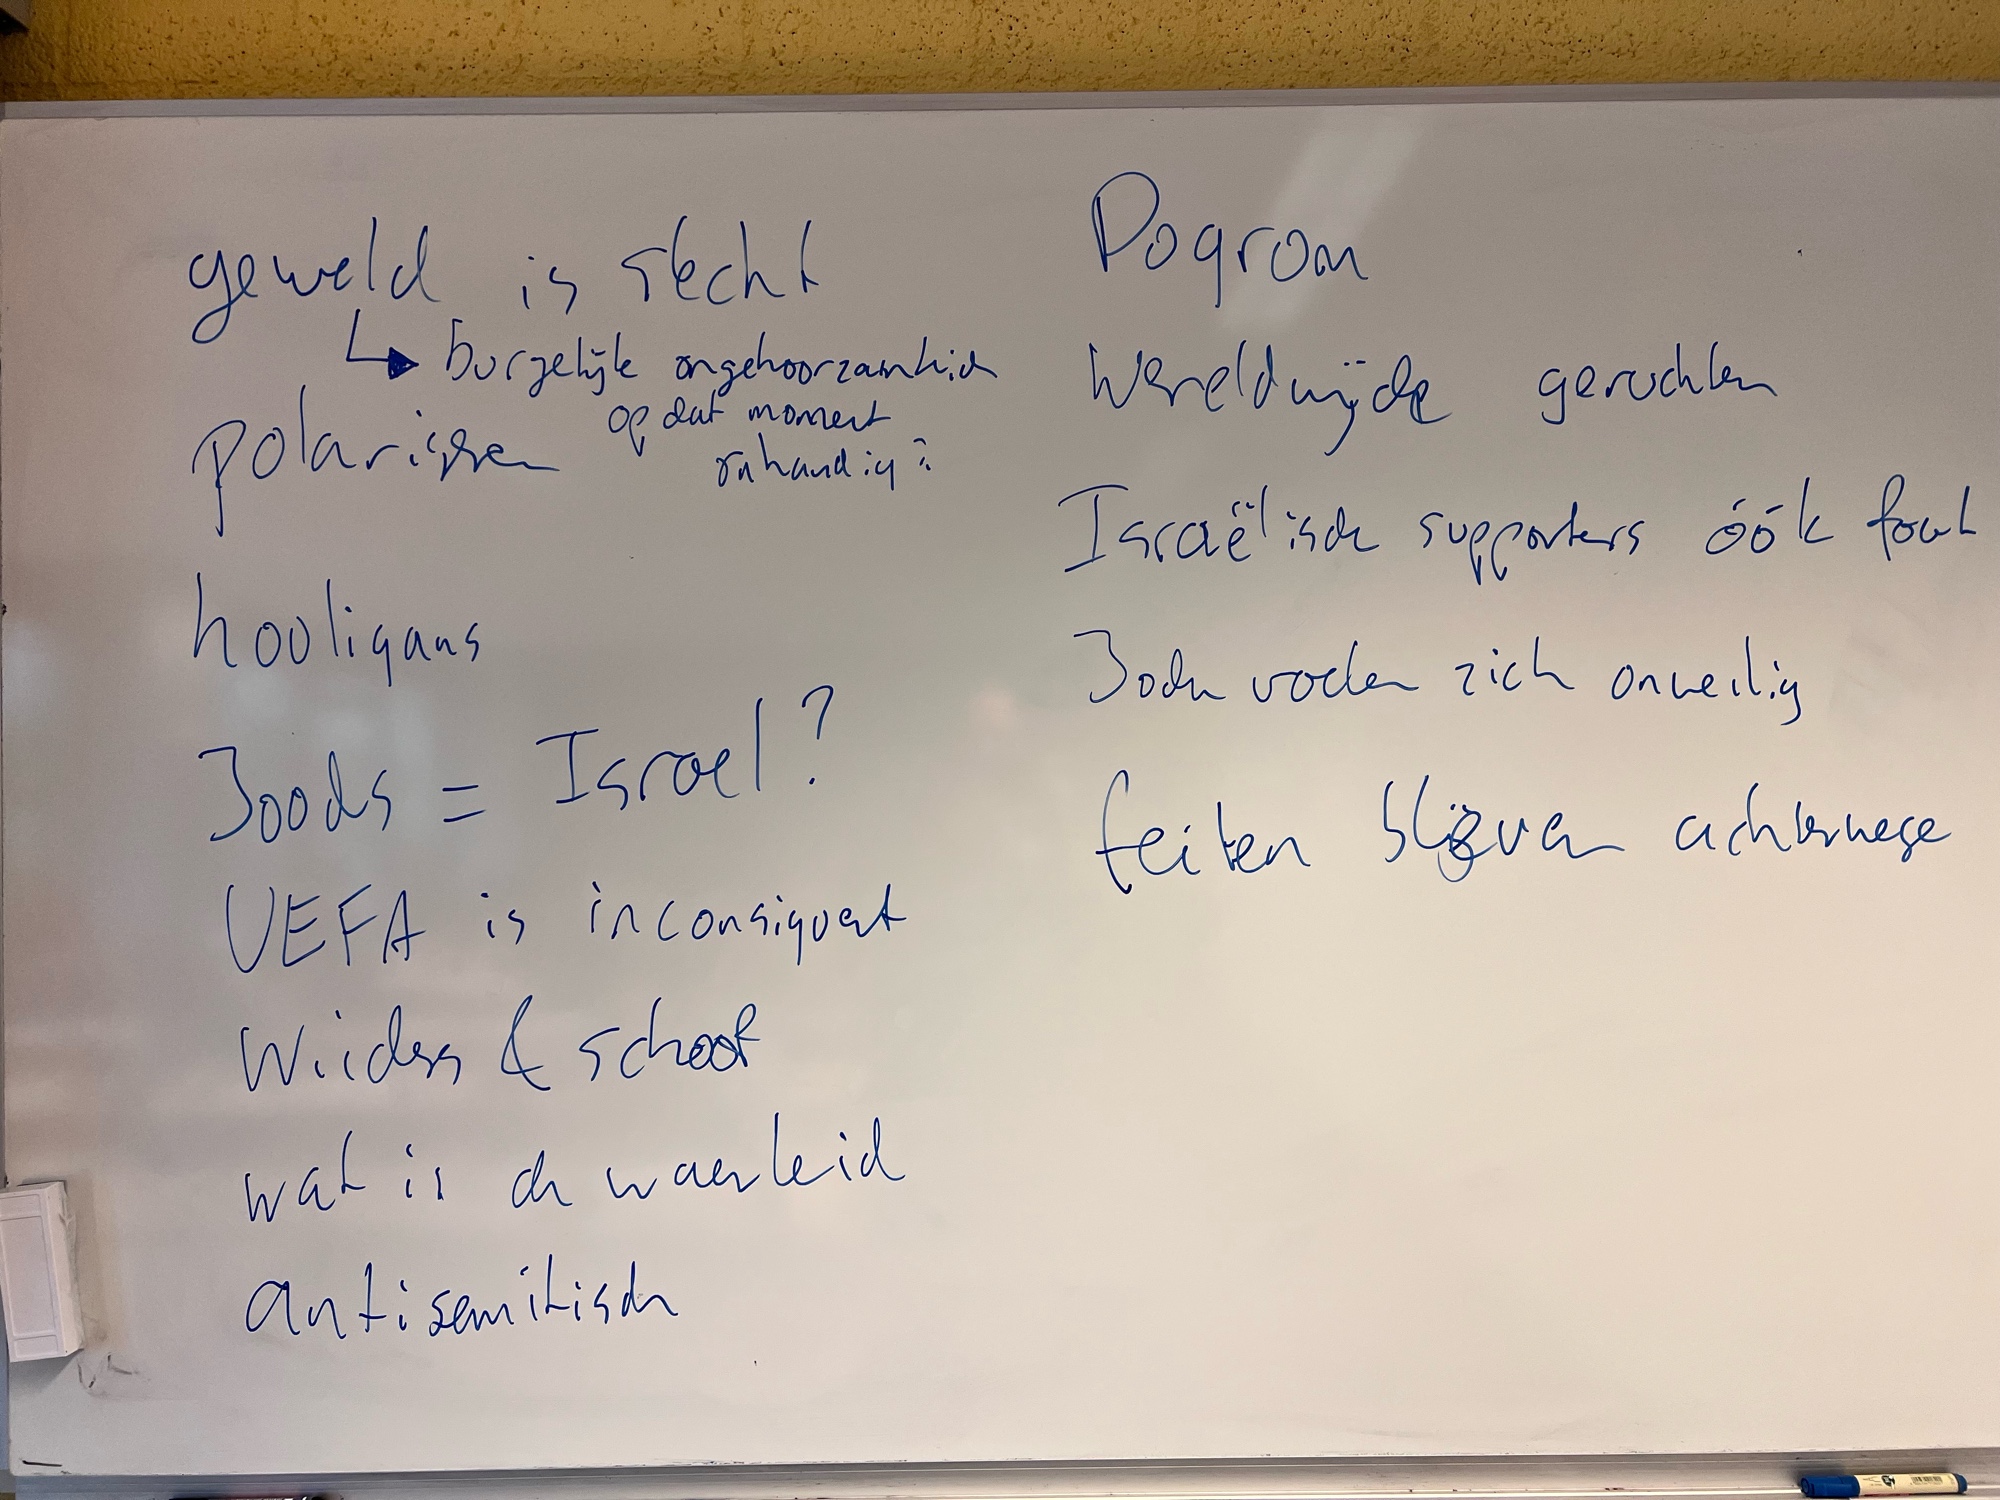 geweld is slecht
↳ burgelijke ongehoorzaamheid
op dat moment
onhandig?
polariseren
hooligans
Joods = Israel?
UEFA is inconsiquent
Wilders & schoof
wat is de waarheid
antisemitisch
Pogrom
Wereldwijde geruchten
Israëlische supporters óók fout
Joden voelen zich onveilig
feiten blijven achterwege